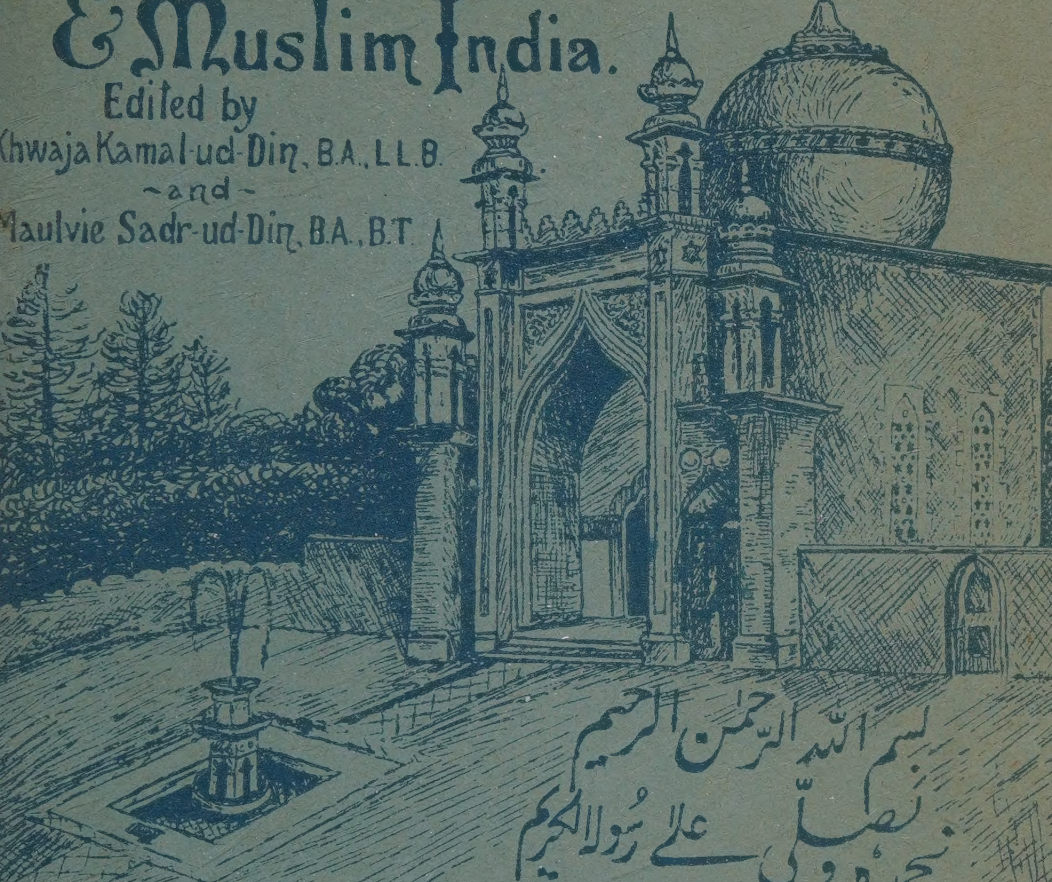 & Muslim India.
Edited by
Khwaja Kamal-ud-Din, B.A., LL.B.
~and~
Maulvie Sadr-ud-Din, B.A., B.T.
بسم الله الرحمٰن الرحيم
نحمده و نصلّي علے رسوله الكريم